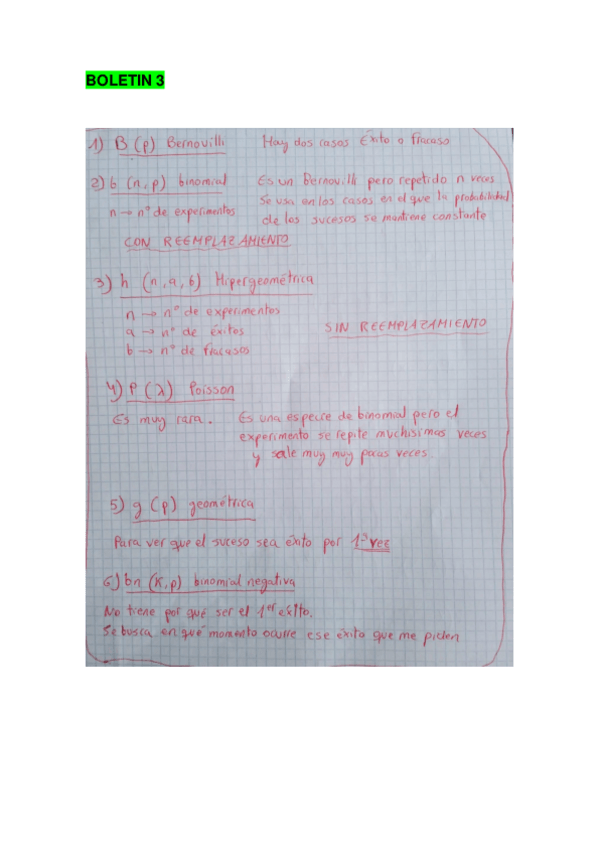 BOLETIN 3
1) B (p) Bernouilli Hay dos casos Éxito o Fracaso
2) b (n, p) binomial Es un Bernouilli pero repetido n veces
Se usa en los casos en el que la probabilidad
n → nº de experimentos de los sucesos se mantiene constante
CON REEMPLAZAMIENTO
3) h (n, a, b) Hipergeométrica
n → nº de experimentos
a → nº de éxitos SIN REEMPLAZAMIENTO
b → nº de fracasos
4) P (λ) Poisson
Es muy rara. Es una especie de binomial pero el
experimento se repite muchísimas veces
y sale muy muy pocas veces.
5) g (p) geométrica
Para ver que el suceso sea éxito por 1ª vez
6) bn (K, p) binomial negativa
No tiene por qué ser el 1er éxito.
Se busca en qué momento ocurre ese éxito que me piden